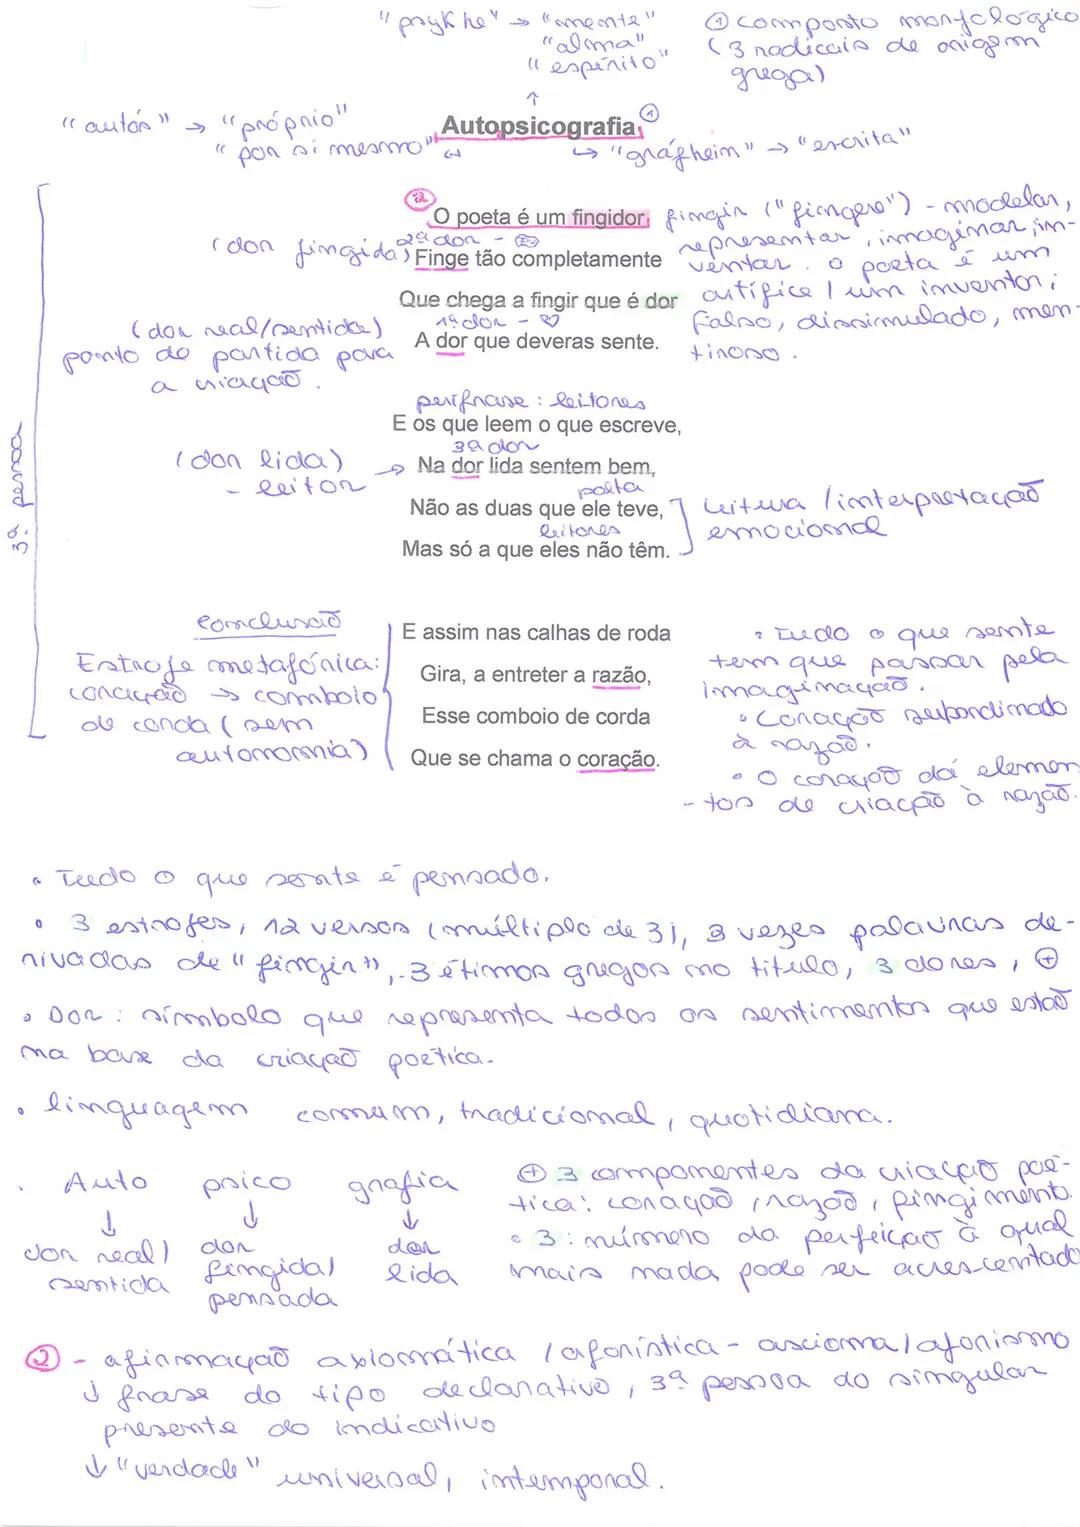 "psykhe" → "mente"
"alma"
"espírito"
① composto morfológico
(3 radicais de origem
grega)
"autós" → "próprio"
"por si mesmo"
Autopsicografia ①
↳ "gráphein" → "escrita"
②
O poeta é um fingidor.
fingir ("fingere") - modelar,
representar, imaginar, in-
ventar. o poeta é um
artífice / um inventor;
falso, dissimulado, men-
tiroso.
(dor fingida) 2ª dor -
Finge tão completamente
Que chega a fingir que é dor
1ª dor - ♡
(dor real/sentida)
ponto de partida para
a criação.
A dor que deveras sente.
perífrase: leitores
E os que leem o que escreve,
3ª dor
(dor lida) →
- leitor
Na dor lida sentem bem,
poeta
Não as duas que ele teve,
leitores
Mas só a que eles não têm.
leitura / interpretação
emocional
3ª pessoa
Conclusão
Estrofe metafórica:
coração → comboio
de corda (sem
autonomia)
E assim nas calhas de roda
Gira, a entreter a razão,
Esse comboio de corda
Que se chama o coração.
• Tudo o que sente
tem que passar pela
imaginação.
• Coração subordinado
à razão.
• O coração dá elemen
- tos de criação à razão.
• Tudo o que sente é pensado.
• 3 estrofes, 12 versos (múltiplo de 3), 3 vezes palavras de-
rivadas de "fingir", 3 étimos gregos no título, 3 dores, ⊕
• Dor: símbolo que representa todos os sentimentos que estão
na base da criação poética.
• linguagem comum, tradicional, quotidiana.
• Auto psico grafia
↓ ↓ ↓
dor real/ dor dor
sentida fingida/ lida
pensada
⊕ 3 componentes da criação poé-
tica: coração, razão, fingimento.
• 3: número da perfeição à qual
mais nada pode ser acrescentado
② - afirmação axiomática / aforística - axioma / aforismo
↓ frase do tipo declarativo, 3ª pessoa do singular
presente do indicativo
↓ "verdade" universal, intemporal.